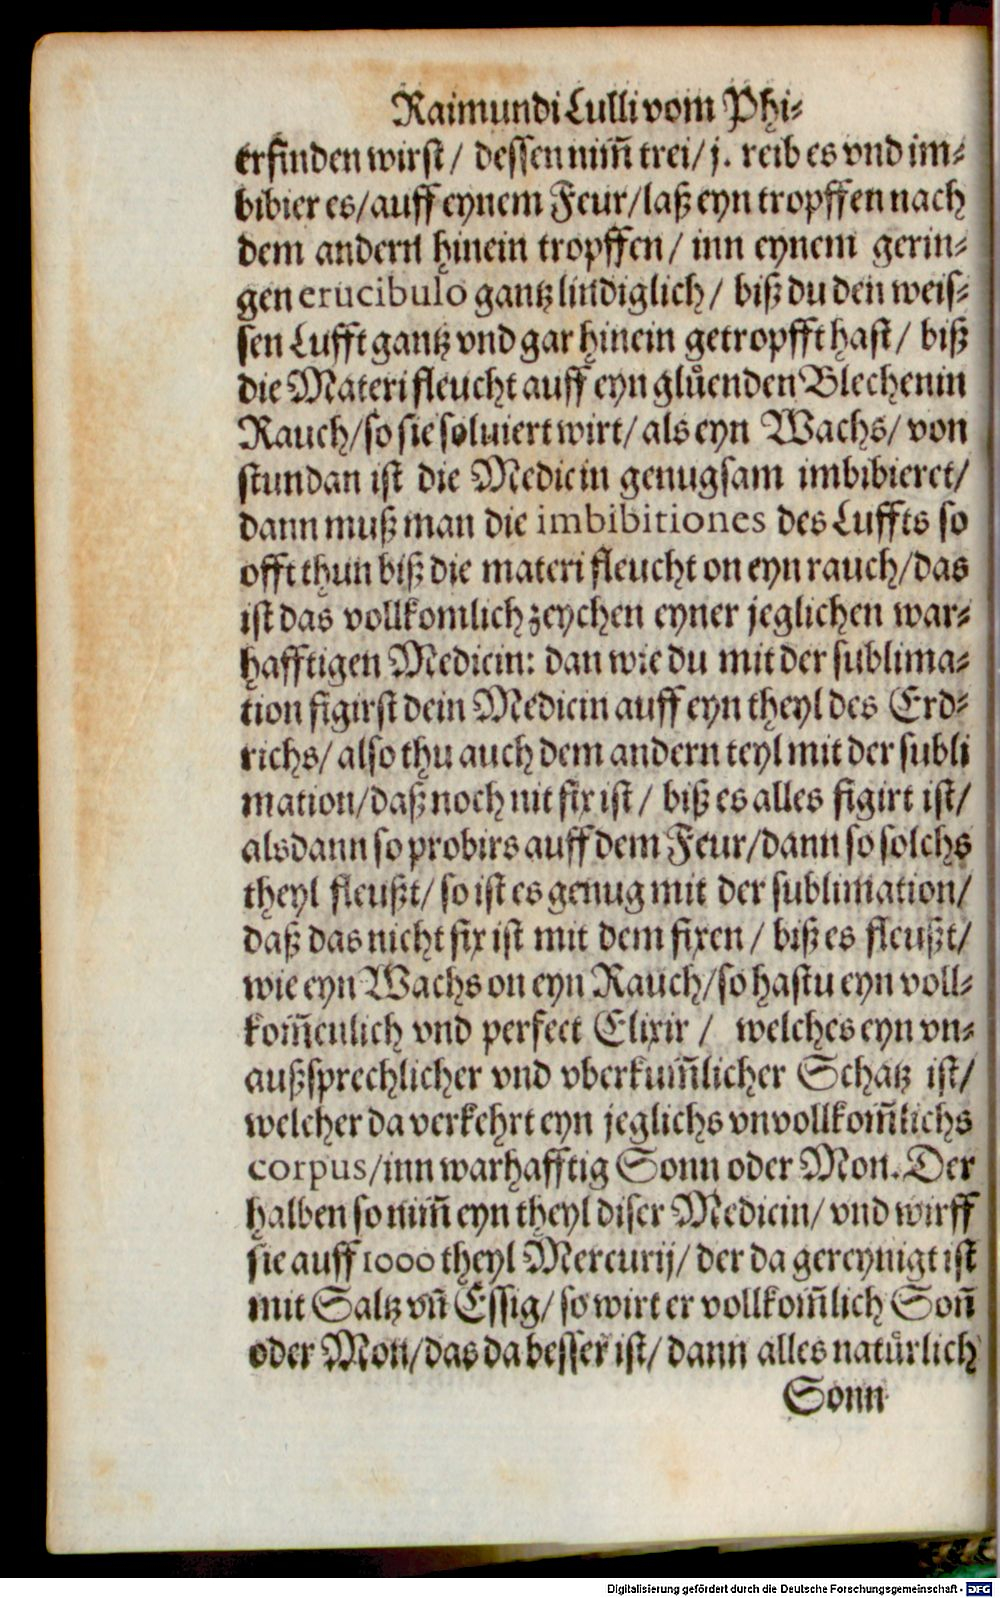 Raimundi Lulli vom Phi-
erfinden wirst / dessen nim̃ trei / j. reib es vnd im-
bibier es / auff eynem Feur / laß eyn tropffen nach
dem andern hinein tropffen / inn eynem gerin-
gen crucibulo gantz lindiglich / biß du den weis-
sen Lufft gantz vnd gar hinein getropfft hast / biß
die Materi fleucht auff eyn glůenden Blech enin
Rauch / so sie solviert wirt / als eyn Wachs / von
stundan ist die Medicin genugsam imbibieret /
dann muß man die imbibitiones des Luffts so
offt thun biß die materi fleucht on eyn rauch / das
ist das vollkomlich zeychen eyner jeglichen war-
hafftigen Medicin: dan wie du mit der sublima-
tion figirst dein Medicin auff eyn theyl des Erd-
richs / also thu auch dem andern teyl mit der subli
mation / daß noch nit fix ist / biß es alles figirt ist /
alsdann so probirs auff dem Feur / dann so solchs
theyl fleußt / so ist es genug mit der sublimation /
daß das nicht fix ist mit dem fixen / biß es fleußt /
wie eyn Wachs on eyn Rauch / so hastu eyn voll-
kom̃enlich vnd perfect Elixir / welches eyn vn-
außsprechlicher vnd vberkum̃licher Schatz ist /
welcher da verkehrt eyn jeglichs vnvollkom̃lichs
corpus / inn warhafftig Sonn oder Mon. Der
halben so nim̃ eyn theyl diser Medicin / vnd wirff
sie auff 1000 theyl Mercurij / der da gereynigt ist
mit Saltz vñ Essig / so wirt er vollkom̃lich Soñ
oder Mon / das da besser ist / dann alles natůrlich
Sonn
Digitalisierung gefördert durch die Deutsche Forschungsgemeinschaft - DFG